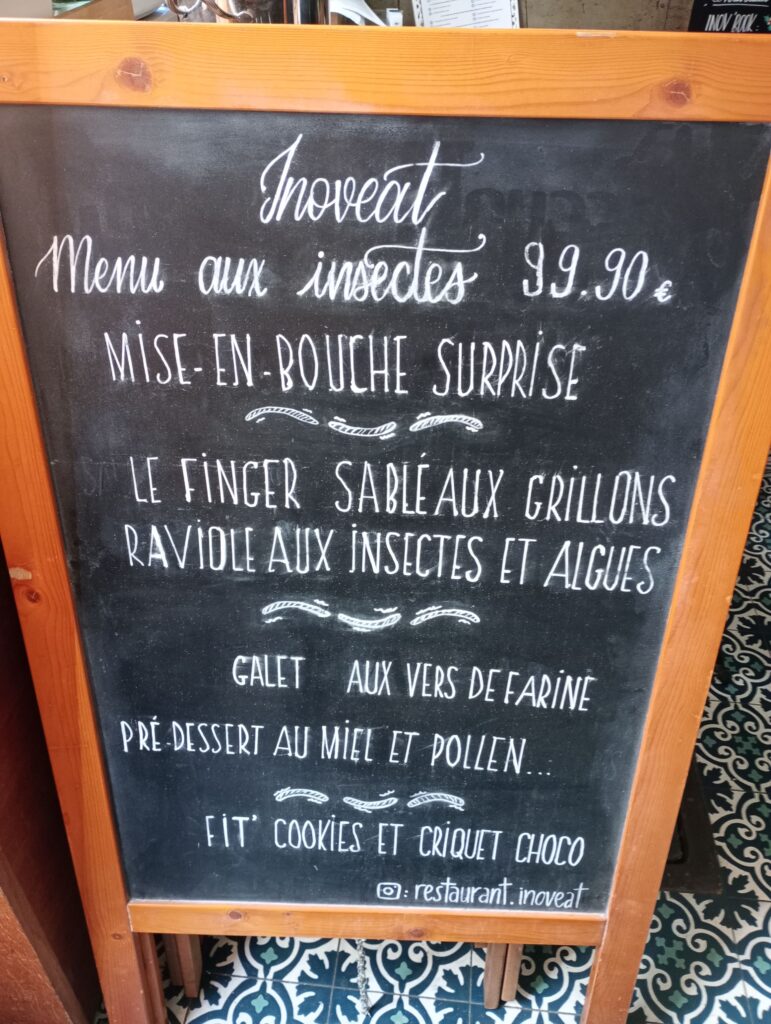 INOV'ROCK
Inoveat
Menu aux insectes 99.90€
MISE-EN-BOUCHE SURPRISE
LE FINGER SABLÉ AUX GRILLONS
RAVIOLE AUX INSECTES ET ALGUES
GALET AUX VERS DE FARINE
PRÉ-DESSERT AU MIEL ET POLLEN...
FIT' COOKIES ET CRIQUET CHOCO
: restaurant.inoveat